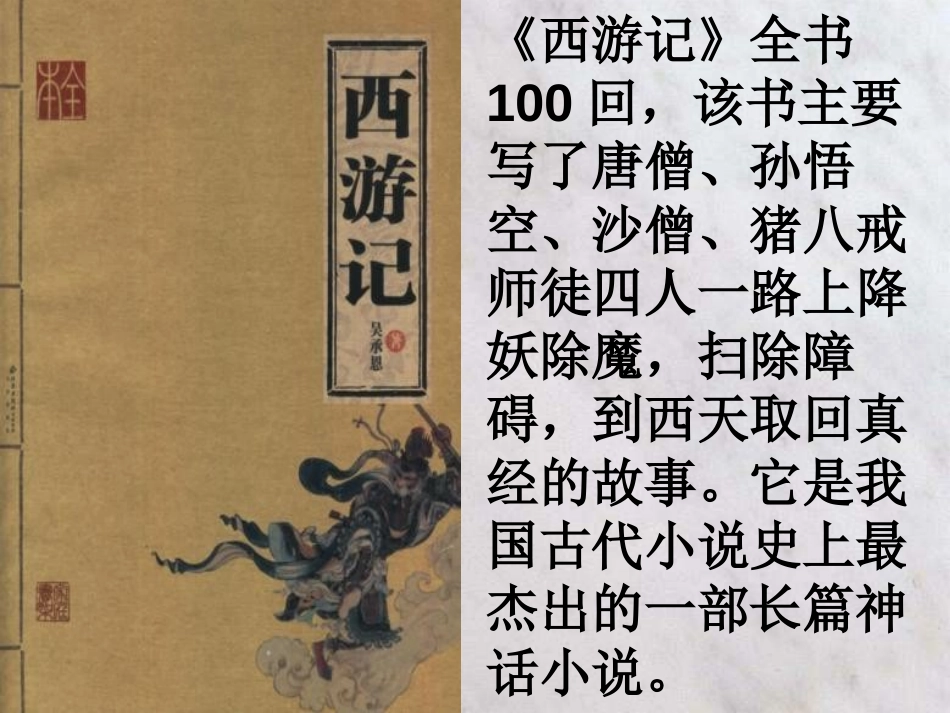 全本
西游记
吴承恩
著
《西游记》全书
100 回，该书主要
写了唐僧、孙悟
空、沙僧、猪八戒
师徒四人一路上降
妖除魔，扫除障
碍，到西天取回真
经的故事。它是我
国古代小说史上最
杰出的一部长篇神
话小说。